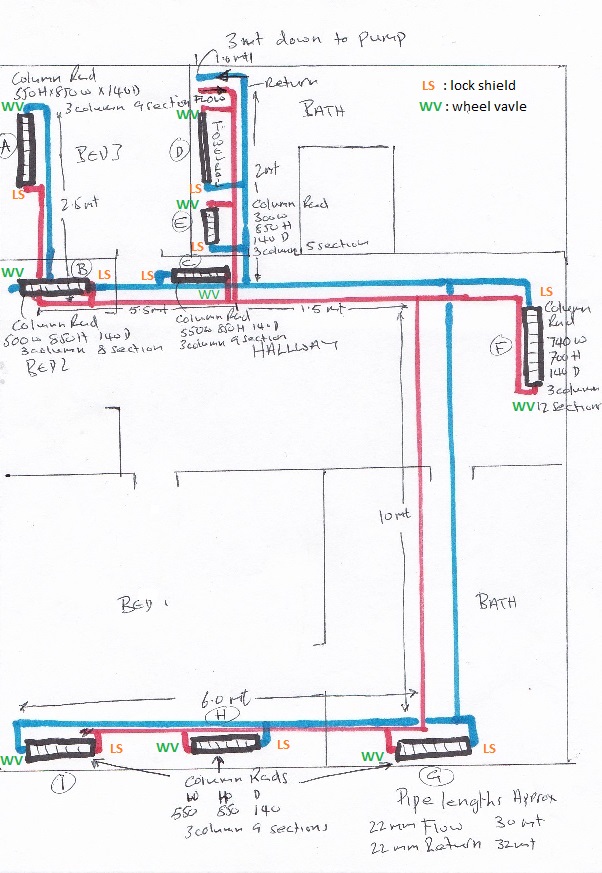 3mt down to pump
1.0mt
Return
Column Rad
550H x 850W x 140D
3 column 9 section
LS : lock shield
WV : wheel vavle
WV
FLOW
WV
BATH
A
BED 3
D
TOWEL RAIL
LS
2.5mt
LS
WV
2mt
E
LS
Column Rad
300W
850H
140 D
3 column 5 section
WV
B
LS
LS
C
WV
5.5mt
1.5mt
LS
Column Rad
500W 850H 140D
3 column 8 section
BED 2
Column Rad
550W 850H 140D
3 column 9 section
HALLWAY
F
Column
Rad
740W
700H
140 D
3 column
WV 12 section
10mt
BED 1
BATH
6.0mt
H
WV
LS
WV
LS
WV
LS
I
G
Column Rads
W H D
550 850 140
3 column 9 sections
Pipe lengths Approx
22mm Flow 30mt
22mm Return 32mt